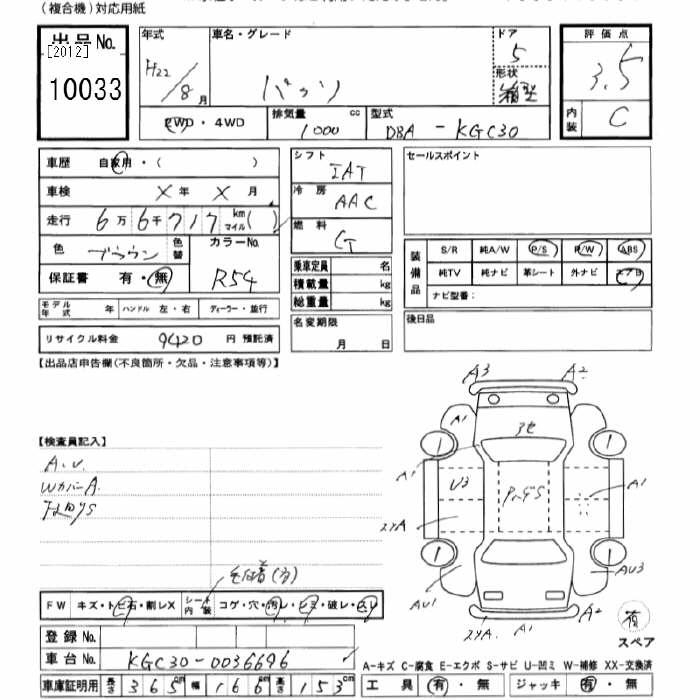 (複合機)対応用紙
出品No.
[2012]
10033
年式
H22/8月
車名・グレード
パッソ
ドア
5
形状
箱型
評価点
3.5
内装
C
2WD・4WD
排気量 cc
1000
型式
DBA - KGC30
車歴 自家用・( )
車検 X年 X月
走行 6万6千717 km マイル( )
色 ブラウン 色替
カラーNo.
R54
保証書 有・無
モデル年式 年 ハンドル 左・右 ディーラー・並行
リサイクル料金 9420 円 預託済
シフト
IAT
冷房
AAC
燃料
G
乗車定員 名
積載量 kg
総重量 kg
名変期限
月 日
セールスポイント
装備品
S/R 純A/W P/S P/W ABS
純TV 純ナビ 革シート 外ナビ エアB
ナビ型番:
後日品
【出品店申告欄(不良箇所・欠品・注意事項等)】
【検査員記入】
A.U.
WカバーA
A3
A2
A1
3セ
A1
U3
A1
AU1
AU3
A1
A2
有
スペア
FW キズ・トビ石・割レX
シート内装 コゲ・穴・汚レ・シミ・破レ・スレ
登録No.
車台No. KGC30-0036696
車庫証明用 長さ 365 幅 166 高さ 153 cm
A-キズ C-腐食 E-エクボ S-サビ U-凹ミ W-補修 XX-交換済
工具 有・無 ジャッキ 有・無